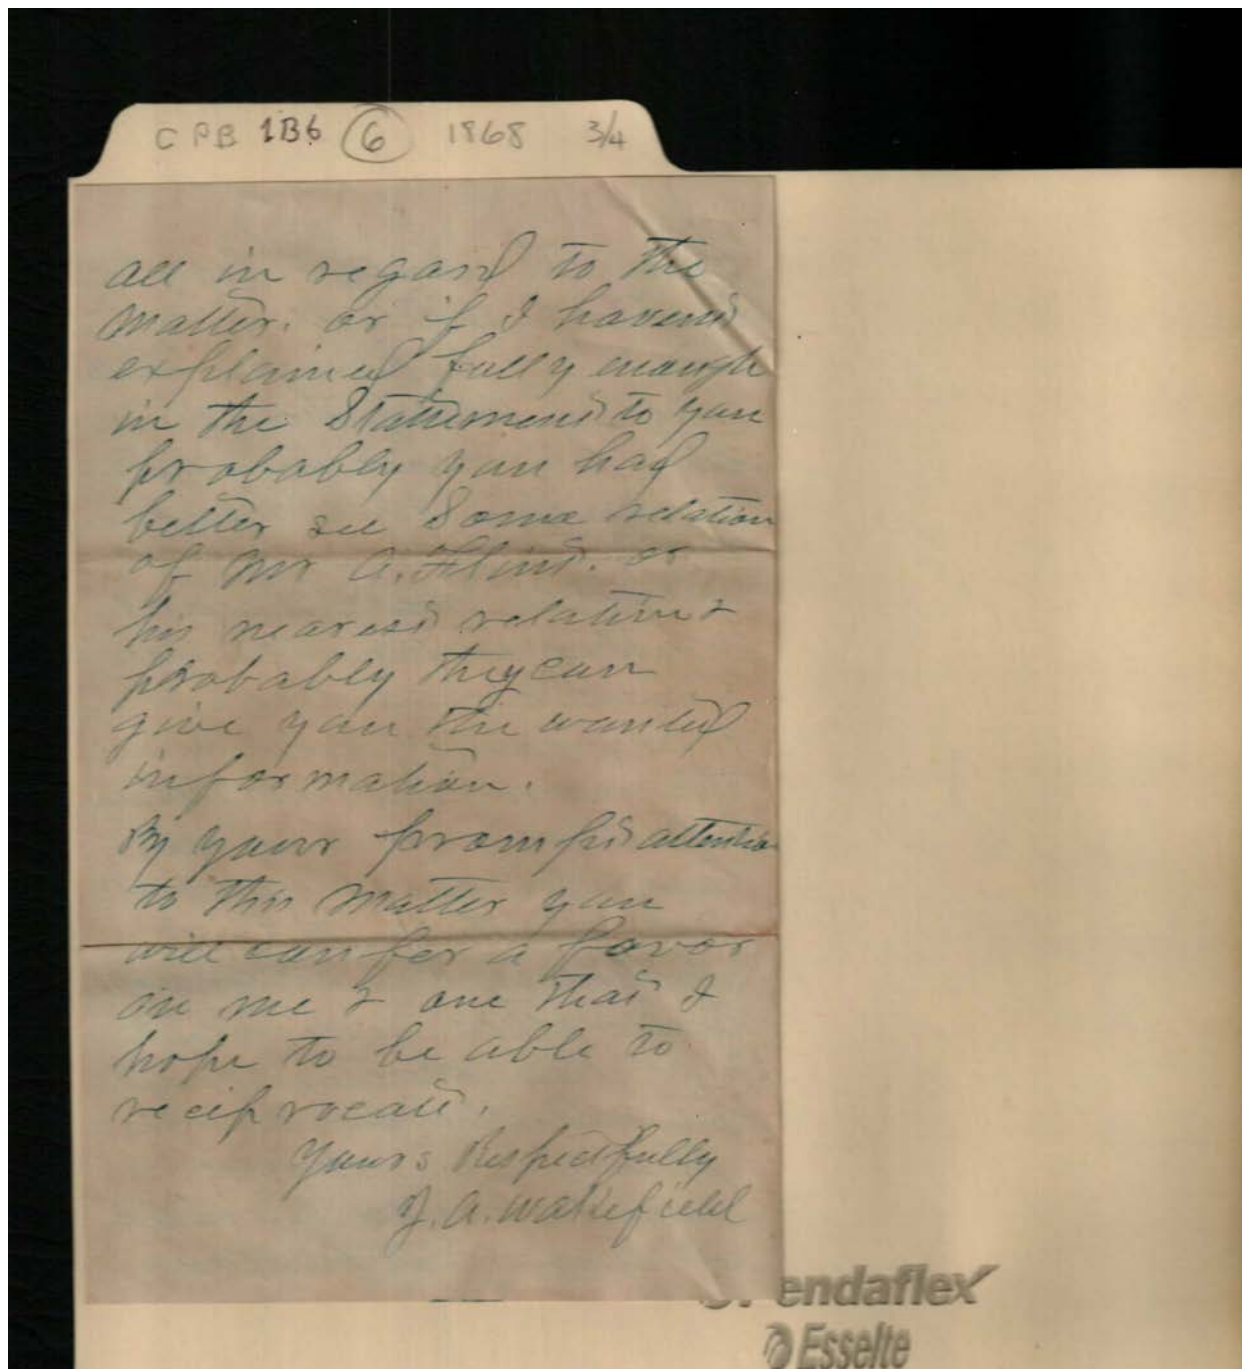 CPB 1B6 6 1868 3/4
all in regard to the
Matter. or if I havent
explained fully enough
in the Statement to you
probably you had
better see Some relation
of Mr A. Flint. or
his nearest relation &
probably they can
give you the wanted
information.
By your prompt attention
to this Matter you
will confer a favor
on me & one that I
hope to be able to
reciprocate.
Yours Respectfully
J. A. Wakefield
endaflex
Esselte